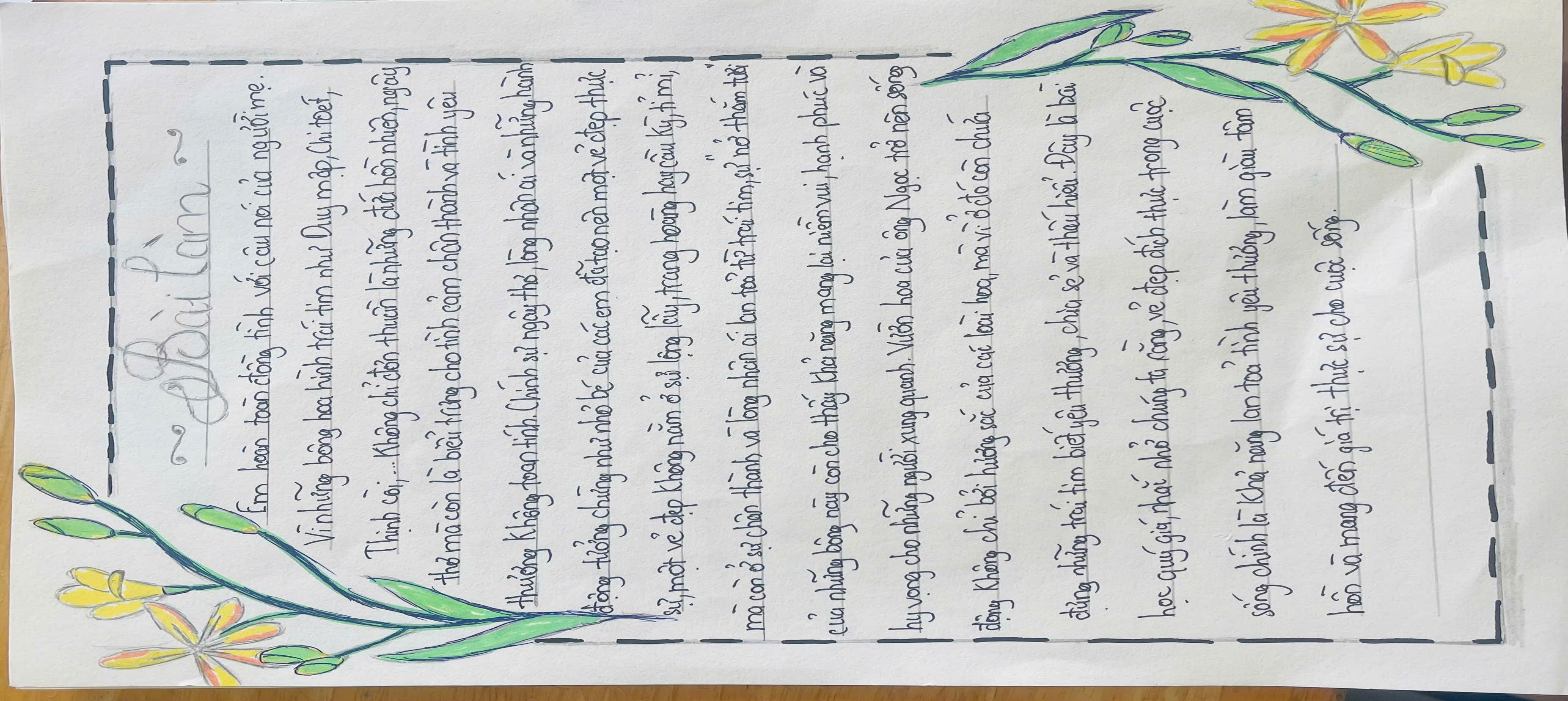 ~ Bài Làm ~
Em hoàn toàn đồng tình với câu nói của người mẹ.
Vì những bông hoa hình trái tim như Duy mập, Chi toét,
Thịnh còi,... Không chỉ đơn thuần là những đứa hồn nhiên, ngây
thơ mà còn là biểu trưng cho tình cảm chân thành và tình yêu
thương không toan tính. Chính sự ngây thơ, lòng nhân ái và những hành
động tưởng chừng như nhỏ bé của các em đã tạo nên một vẻ đẹp thực
sự, một vẻ đẹp không nằm ở sự lộng lẫy, trang hoàng hay cầu kỳ, tỉ mỉ,
mà còn ở sự chân thành và lòng nhân ái lan toả từ trái tim, sự nở thắm tươi
của những bông này còn cho thấy khả năng mang lại niềm vui, hạnh phúc và
hy vọng cho những người xung quanh. Vườn hoa của ông Ngọc trở nên sống
động không chỉ bởi hương sắc của các loài hoa, mà vì ở đó còn chứa
đựng những trái tim biết yêu thương, chia sẻ và thấu hiểu. Đây là bài
học quý giá, nhắc nhở chúng ta rằng, vẻ đẹp đích thực trong cuộc
sống chính là khả năng lan toả tình yêu thương, làm giàu tâm
hồn và mang đến giá trị thực sự cho cuộc sống.